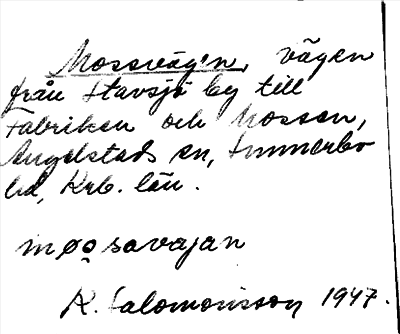 Mossvägen, vägen
från Stavsjö by till
Fabriken och Mossen,
Angelstads sn, Sunnerbo
hd, Krb. län.
møo̱savajan
R. Salomonsson 1947.